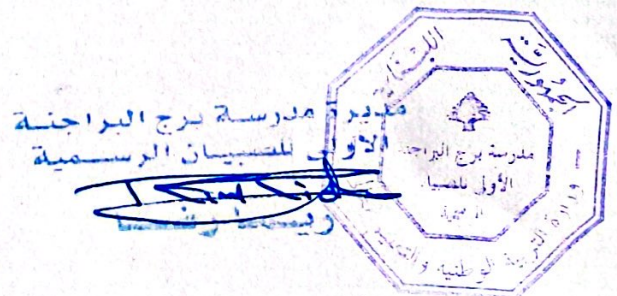 مديرة مدرسة برج البراجنة
الأولى للصبيان الرسمية
الجمهورية اللبنانية
مدرسة برج البراجنة
الأولى للصبيان
الرسمية
وزارة التربية الوطنية والتعليم